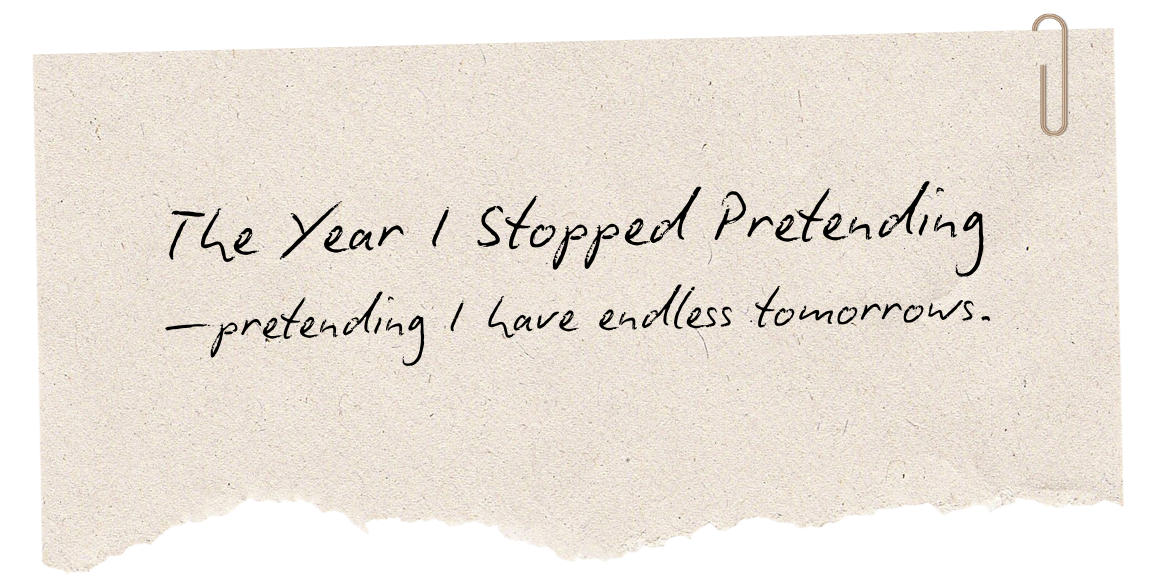 The Year I Stopped Pretending
—pretending I have endless tomorrows.